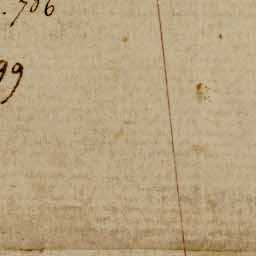 . 786
99